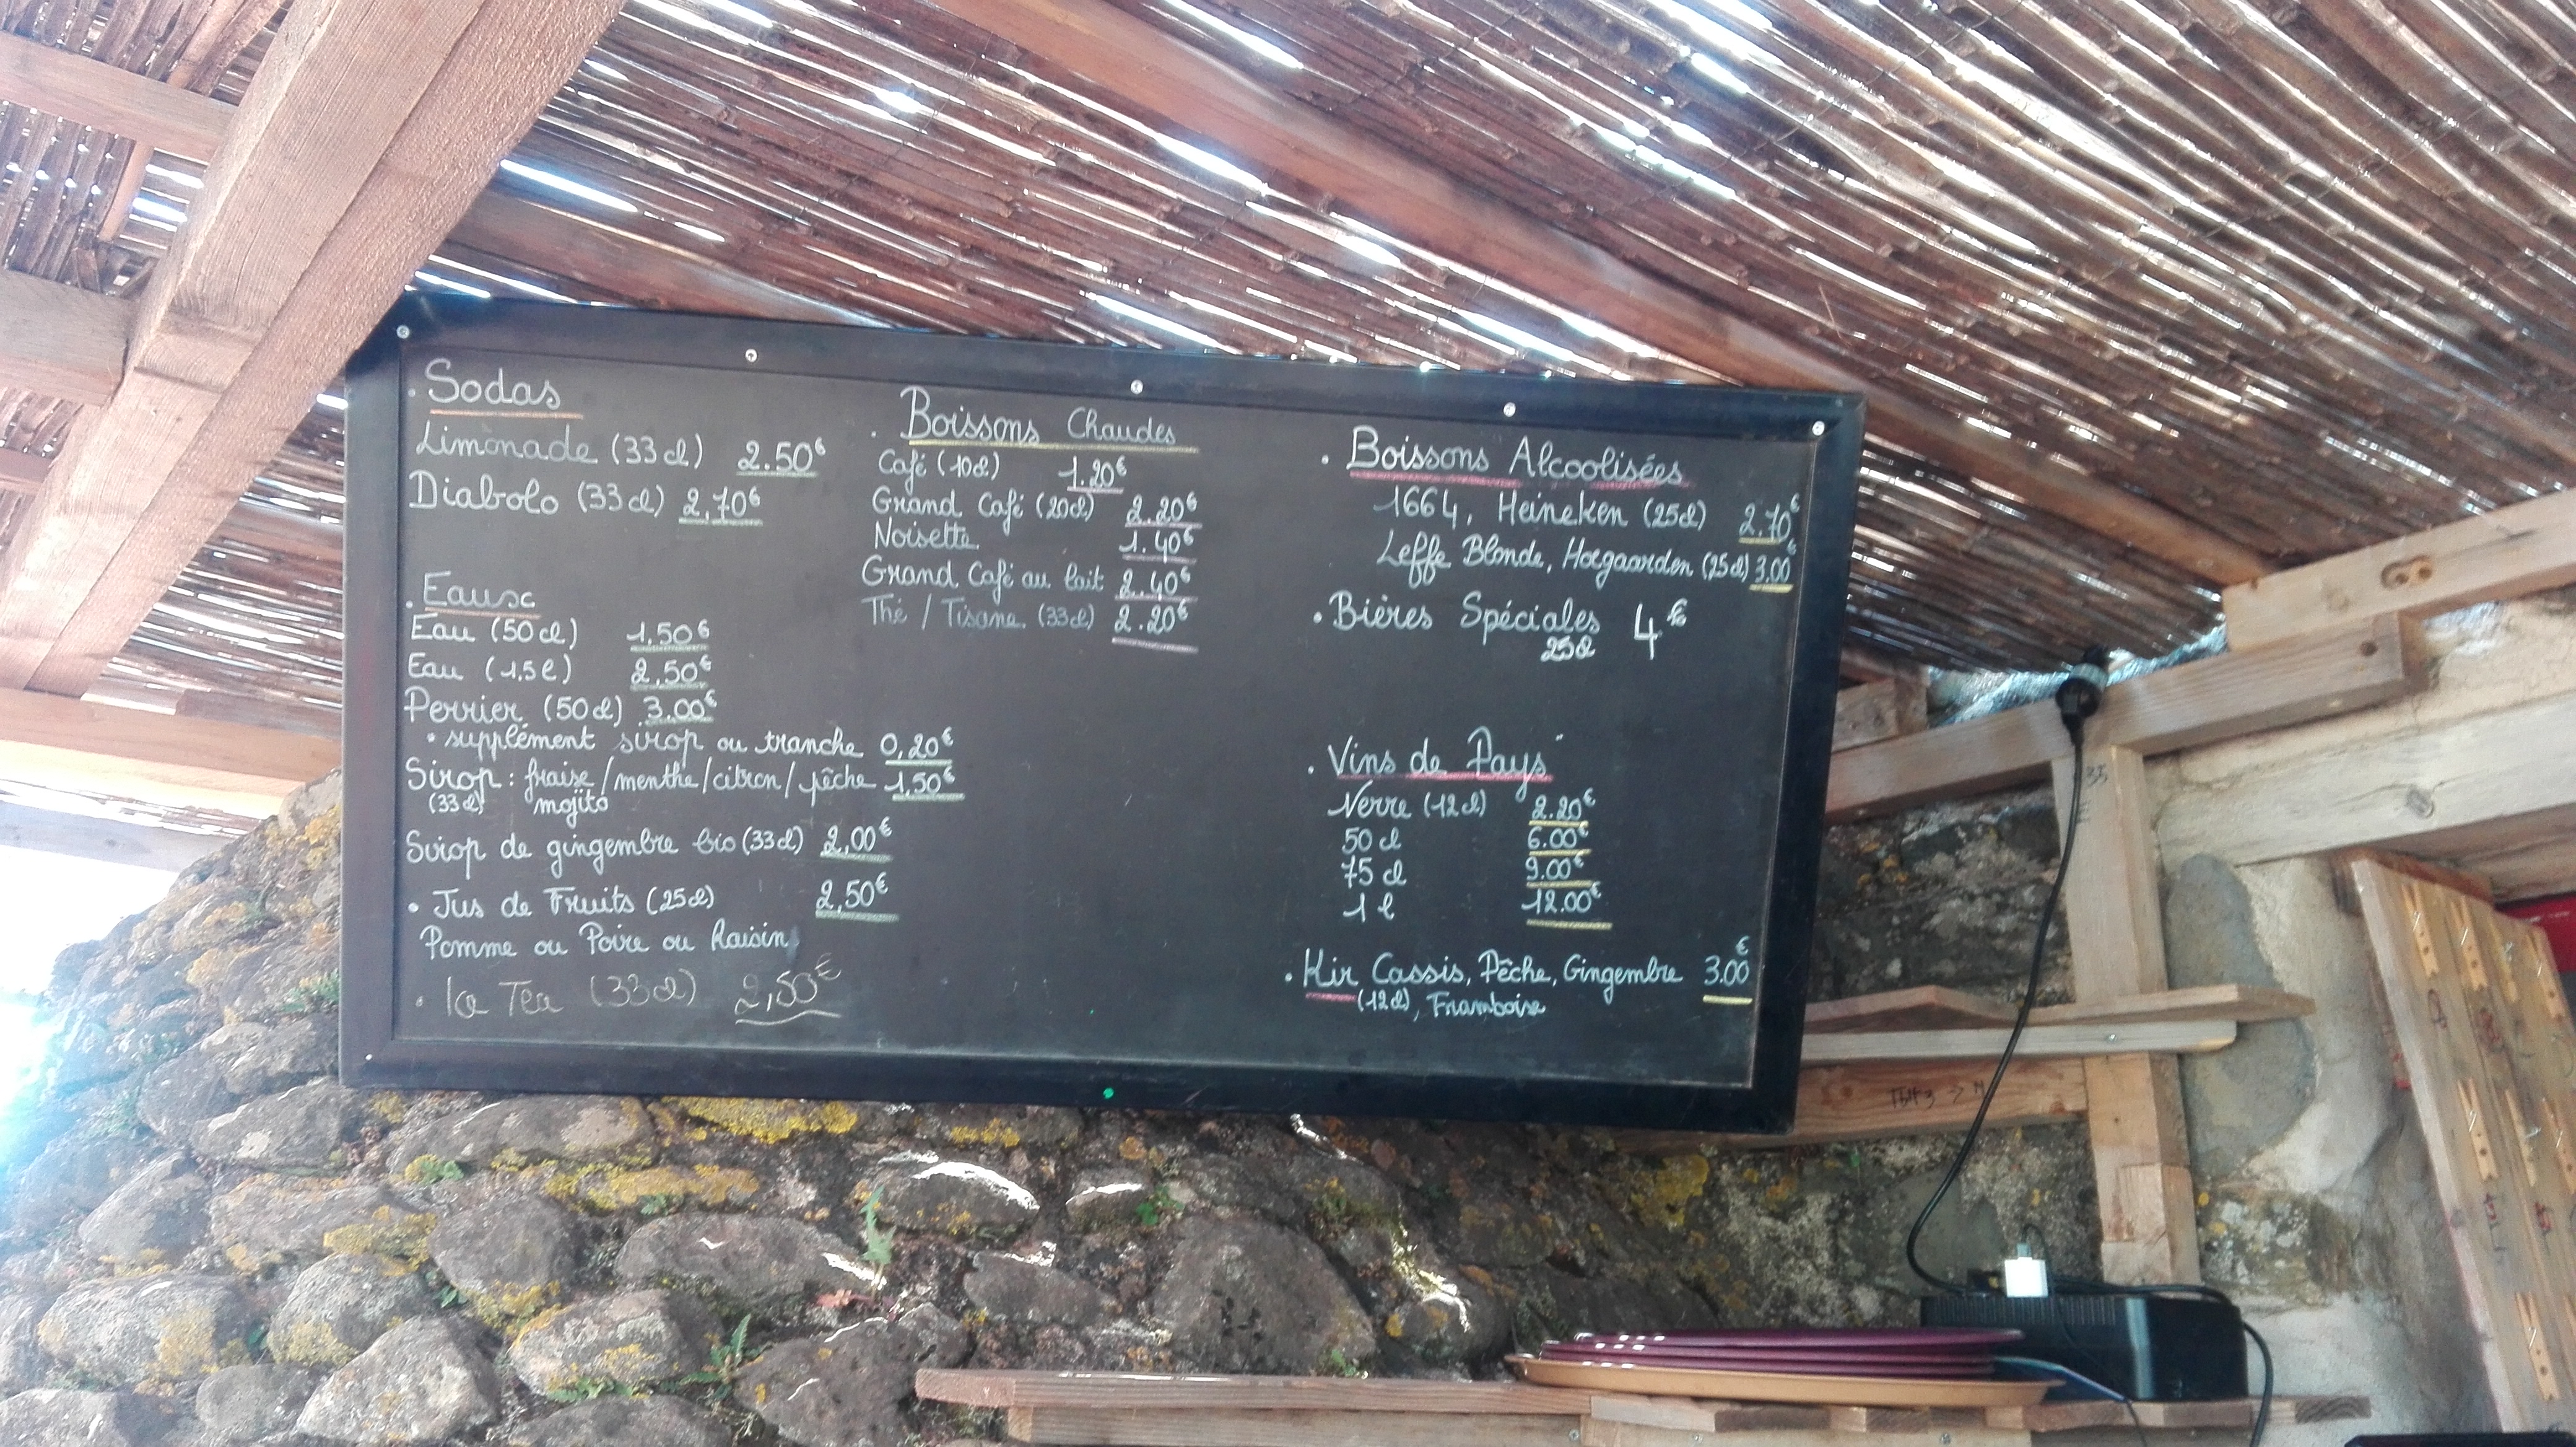 . Sodas
Limonade (33cl) 2.50€
Diabolo (33cl) 2,70€
. Eaux
Eau (50cl) 1,50€
Eau (1.5l) 2,50€
Perrier (50cl) 3.00€
• supplément sirop ou tranche 0,20€
Sirop : fraise/menthe/citron/pêche 1,50€
(33cl) mojito
Sirop de gingembre bio (33cl) 2,00€
• Jus de Fruits (25cl) 2,50€
Pomme ou Poire ou Raisin
• Ice Tea (33cl) 2,50€
. Boissons Chaudes
Café (10cl) 1.20€
Grand Café (20cl) 2.20€
Noisette 1.40€
Grand Café au lait 2.40€
Thé / Tisane (33cl) 2.20€
. Boissons Alcoolisées
1664, Heineken (25cl) 2.70€
Leffe Blonde, Hoegaarden (25cl) 3.00€
• Bières Spéciales 4€
25cl
. Vins de Pays
Verre (12cl) 2.20€
50 cl 6.00€
75 cl 9.00€
1 l 12.00€
. Kir Cassis, Pêche, Gingembre 3.00€
(12cl), Framboise